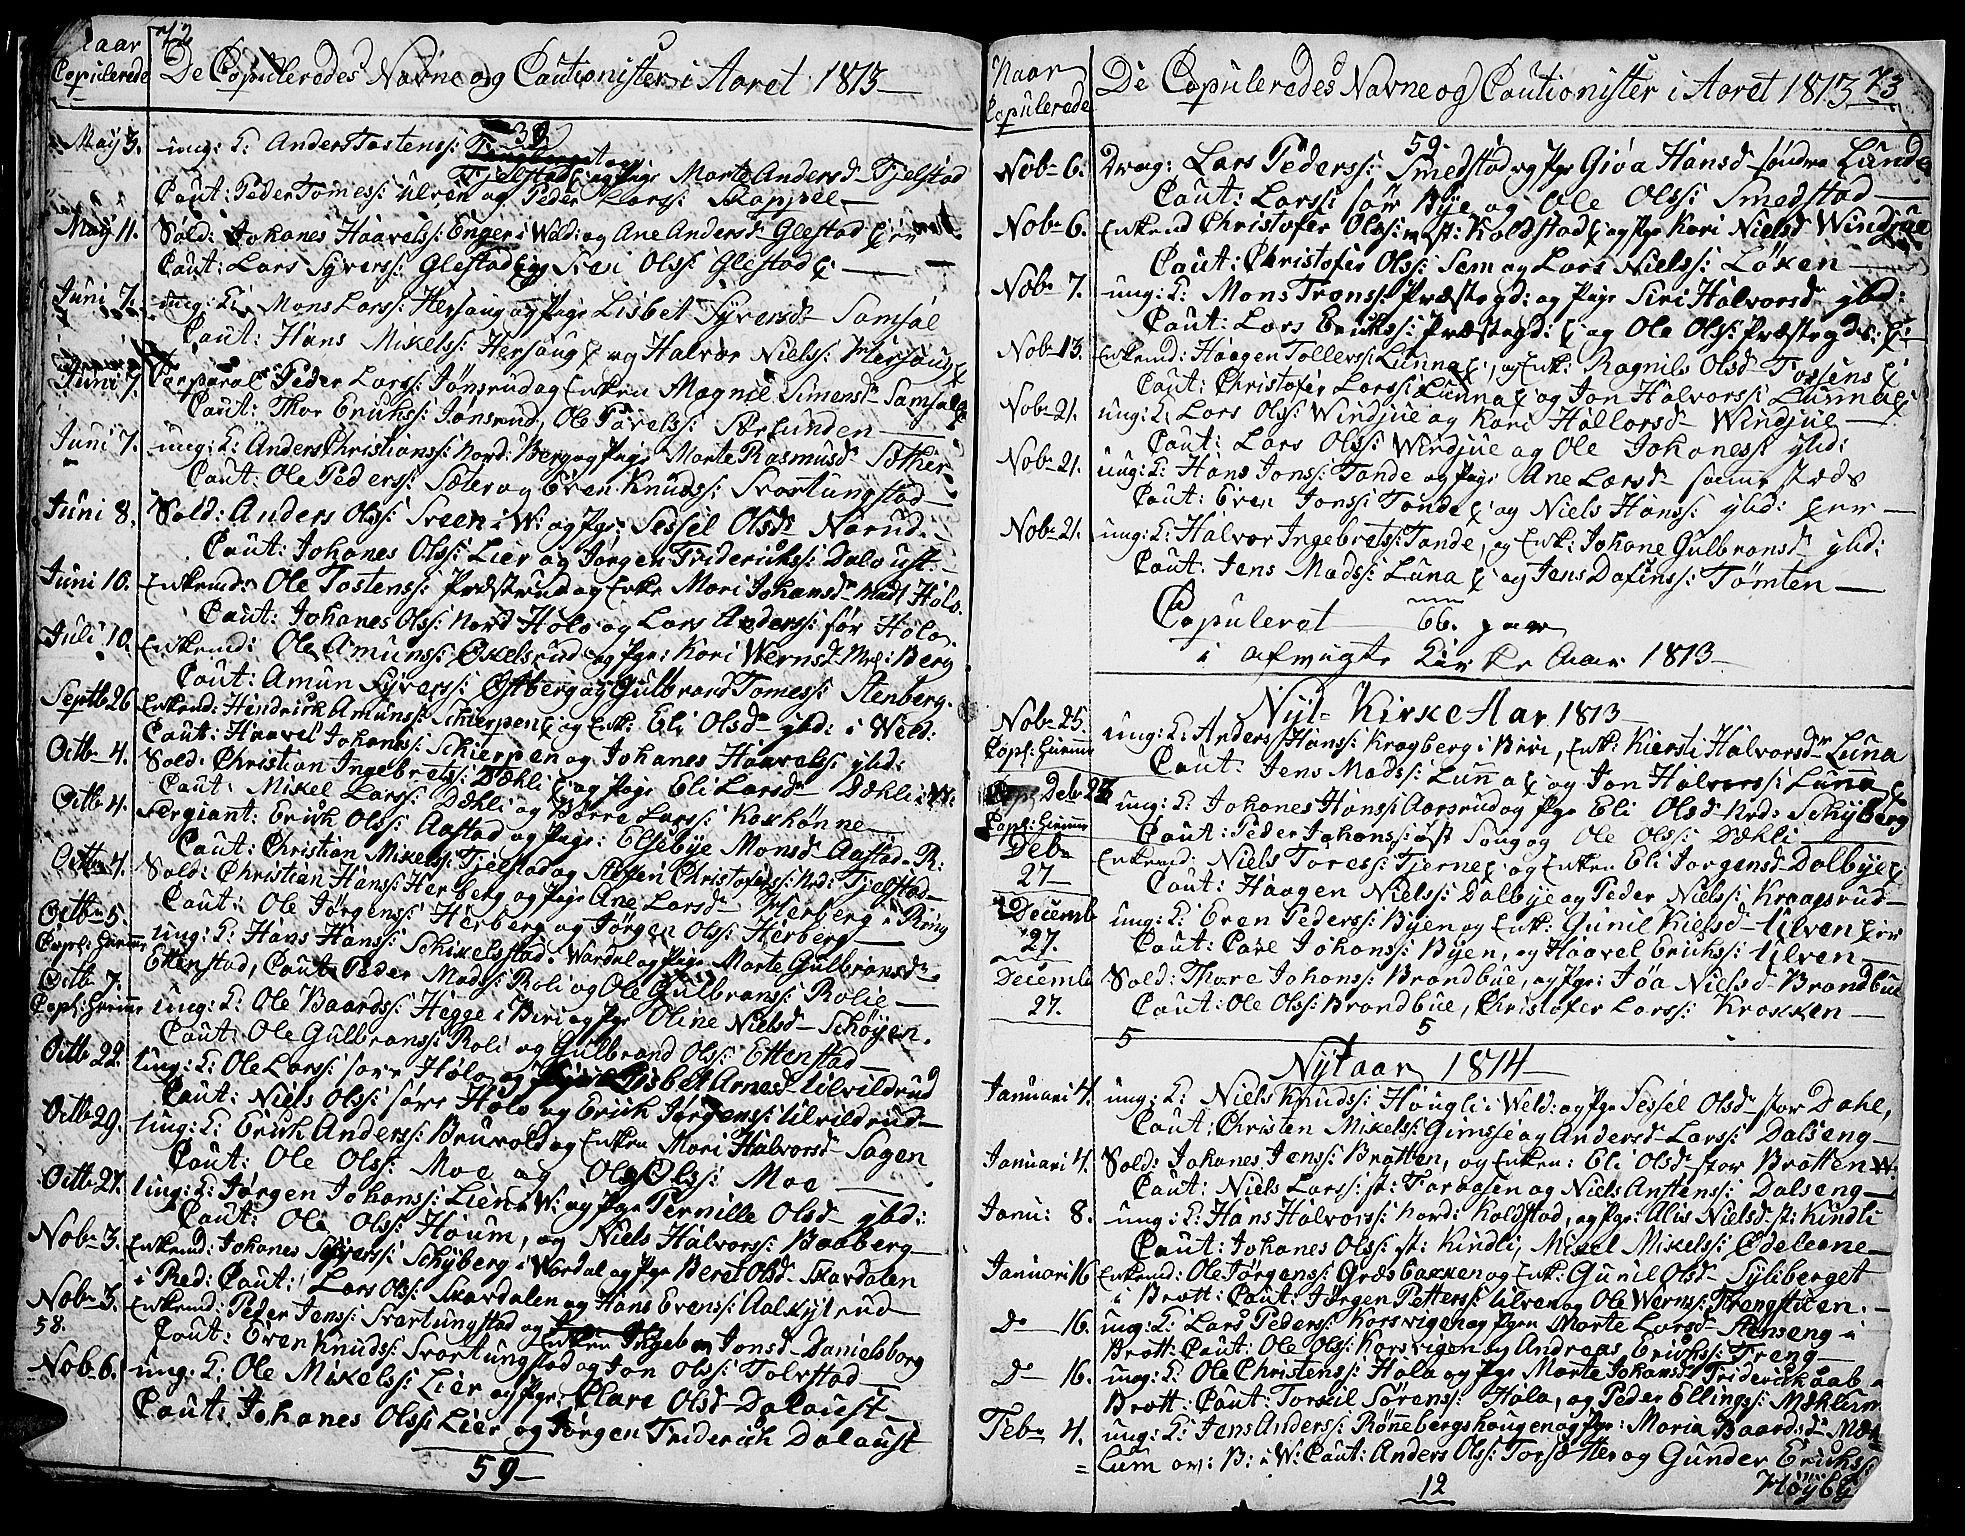 72
Naar Copulerede De Copuleredes Navne og Cautionister i Aaret 1813
38
May 3. ung: K: Anders Tostens:
Fjelstad og Pige Marte Andersd Fjelstad
Caut: Peder Tomes: Ulven og Peder Lars: Skappel
May 11. Sold: Johanes Haavels: Enger i Wald: og Ane Andersd Glestad
Caut: Lars Syvers: Glestad og Ols: Glestad
Juni 7. ung: K: Mons Lars: Hersaug og Pige Lisbet Syversd Samsal
Caut: Hans Mikels: Hersaug og Halvor Niels: Hersaug
Juni 7. Corporal Peder Lars: Jønsrud og Enken Magnil Simensd Samsal
Caut: Thor Erichs: Jonsrud, Ole Pavels:
Juni 7. ung: K: Anders Christians: Nord: Berg og Pige Marte Rasmusd Sether
Caut: Ole Peders: Sæter og Even Knuds: Svartungstad
Juni 8. Sold: Anders Ols: Sveen i W: og Pge: Sessel Olsd Narud
Caut: Johanes Ols: Lier og Jørgen Friderichs: Dalaust
Juni 10. Enkemd: Ole Tostens: Præstrud og Enke Mari Johansd Nadt Holo
Caut: Johanes Ols: Nord Holo og Lars Anders: sør Holo
Juli 10. Enkemd: Ole Amuns: Økelsrud og Pge: Kari Wernsd Berg
Caut: Amun Syvers: Østberg og Gulbrand Tomes: Stenberg
Septb 26 Enkemd: Hendrick Amuns: Schierpen og Enk: Eli Olsd ybd: i Weld:
Caut: Haavel Johans: Schierpen og Johanes Haavels: ybd:
Octb 4. Sold: Christian Ingebrets: Dæhli og Pige Eli Larsd Dæhli i W:
Caut: Mikel Lars: Dæhli og Børre Lars: Kaxhønne
Octb 4. Sergiant: Erich Ols: Aastad og Pige: Elsebye Monsd Aastad R:
Caut: Christian Mikels: Fjelstad og Christofers: Nrd: Fjelstad
Octb 4. Sold: Christian Hans: Herberg og Pige Ane Larsd Herberg i Ring
Caut: Ole Jørgens: Herberg og Jørgen Ols: Herberg
Octb 5. ung: K: Hans Hans: Schikelstad i Wardal og Pige Marte Gulbransd
Ettenstad, Caut: Peder Mads: Roli og Ole Gulbrans: Rolie
Octb 7. ung: K: Ole Baards: Hegge i Biri og Pge Oline Nielsd Schøyen
Caut: Ole Gulbrans: Roli og Gulbrand Ols: Ettenstad
Octb 22. Ung: K: Ole Lars: søre Holo og Pige Lisbet Arnesd Ulvildrud
Caut: Niels Ols: søre Holo og Erich Jørgens: Ulvildrud
Octb 29. Ung: K: Erich Anders: Bruvold og Enken Mari Halvorsd Sagen
Caut: Ole Ols: Moe og Ole Ols: Moe
Octb 27. Ung: K: Jørgen Johans: Lien i W: og Pge Pernille Olsd ybd:
Caut: Ole Ols: Houm, og Niels Halvors: Baaberg
Nob 3. Enkemd: Johanes Syvers: Schyberg i Wardal og Pge Beret Olsd Skardalen
i Red: Caut: Lars Ols: Skardalen og Hans Evens: Aalkytrud
Nob 3. Enkemd: Peder Jens: Svartungstad og Enken Ingebor Jonsd Danielsborg
58. Caut: Even Knuds: Svartungstad og Jon Ols: Tolvstad
Nob 6. ung: K: Ole Mikels: Lier og Pge: Clare Olsd Dalaust
Caut: Johanes Ols: Lier og Jørgen Friderich Dalaust
59
Naar Copulerede De Copuleredes Navne og Cautionister i Aaret 1813 73
59.
Nob 6. Drag: Lars Peders: Smedstad og Pge Gioa Hansd søndre Lunde
Caut: Lars: sør Bye og Ole Ols: Smedstad
Nob 6. Enkemd Christofer Ols: st: Koldstad og Pge Kari Nielsd Windjue
Caut: Christofer Ols: Sem og Lars Niels: Løken
Nob 7. ung: K: Mons Trons: Præstegd: og Pige Siri Halvorsd ybd:
Caut: Lars Erichs: Præstegd: og Ole Ols: Præstegd:
Nob 13. Enkemd: Haagen Tollers: Lunna, og Enk: Ragnils Olsd Fossens
Caut: Christofer Lars: Lunna og Jon Halvors: Lunna
Nob 21. ung: K: Lars Ols: Windjue og Kari Hallorsd Windjue
Caut: Lars Ols: Windjue og Ole Johanes: ybd:
Nob 21. ung: K: Hans Jons: Tande og Pige Ane Larsd samme steds
Caut: Even Jons: Tande og Niels Hans: ybd:
Nob 21. ung: K: Halvor Ingebrets: Tande, og Enk: Johane Gulbransd ybd:
Caut: Jens Mads: Luna og Jens Dafins: Tømten
Copuleret 66. par
i afvugte Kirke Aar 1813
Nyt Kirke Aar 1813
Nob 25. ung: K: Anders Hans: Kragberg i Biri, Enk: Kiersti Halvorsdr Luna
Caut: Jens Mads: Lunna og Jon Halvors: Lunna
Deb 27 ung: K: Johanes Hans: Aarsrud og Pge Eli Olsd Nrd: Schyberg
Caut: Peder Johans: øst Saug og Ole Ols: Dæhli
Deb 27 Enkemd: Niels Tores: Tjerne og Enken Eli Jørgensd Dalbye
Caut: Haagen Niels: Dalbye og Peder Niels: Kraagsrud
Decemb 27. ung: K: Even Peders: Byen og Enk: Gunil Kielsd Ulven
Caut: Pare Johans: Byen, og Haavel Erichs: Ulven
Decemb 27. Sold: Thore Johans: Brandbue, og Pge: Joa Nielsd Brandbue
Caut: Ole Ols: Brandbue, Christofer Lars: Kroxken
5 5
Nyt aar 1814
Januari 4. ung: K: Niels Knuds: Hougli i Weld: og Pge Sessel Olsd stor Dahl,
Caut: Christen Mikels: Gimse og Andersd Lars: Dalseng
Januari 4. Sold: Johanes Jens: Bratten, og Enken: Eli Olsd stor Bratten W:
Caut: Niels Lars: st: Faraasen og Niels Anstens: Dalseng
Janu: 8. ung: K: Hans Halvors: Nord: Koldstad, og Pge: Alis Nielsd st: Kindli
Caut: Johanes Ols: st: Kindli, Mikel Mikels: Ødeleane
Januari 16 Enkemd: Ole Jørgens: Græsbakken og Enk: Gunil Olsd Syliberget
i Brott: Caut: Jørgen Petters: Ulven og Ole Werns: Frengstuen
D 16. ung: K: Lars Peders: Korsvigen og Pgen Marte Larsd Stenseng i
Brott: Caut: Ole Ols: Korsvigen og Andreas Erichs: Freng
D 16. ung: K: Ole Christens: Hola og Pge Marte Johansd Friderichaab
Brott: Caut: Torkil Sørens: Hola, og Peder Ellings: Mæhlum
Feb 4. ung: K: Jens Anders: Rønnebergshougen og Pge: Maria Baardsd Mæ=
=lum ov: B: i W: Caut: Anders Ols: Torsæther og Gunder Erichs:
Høyby
12